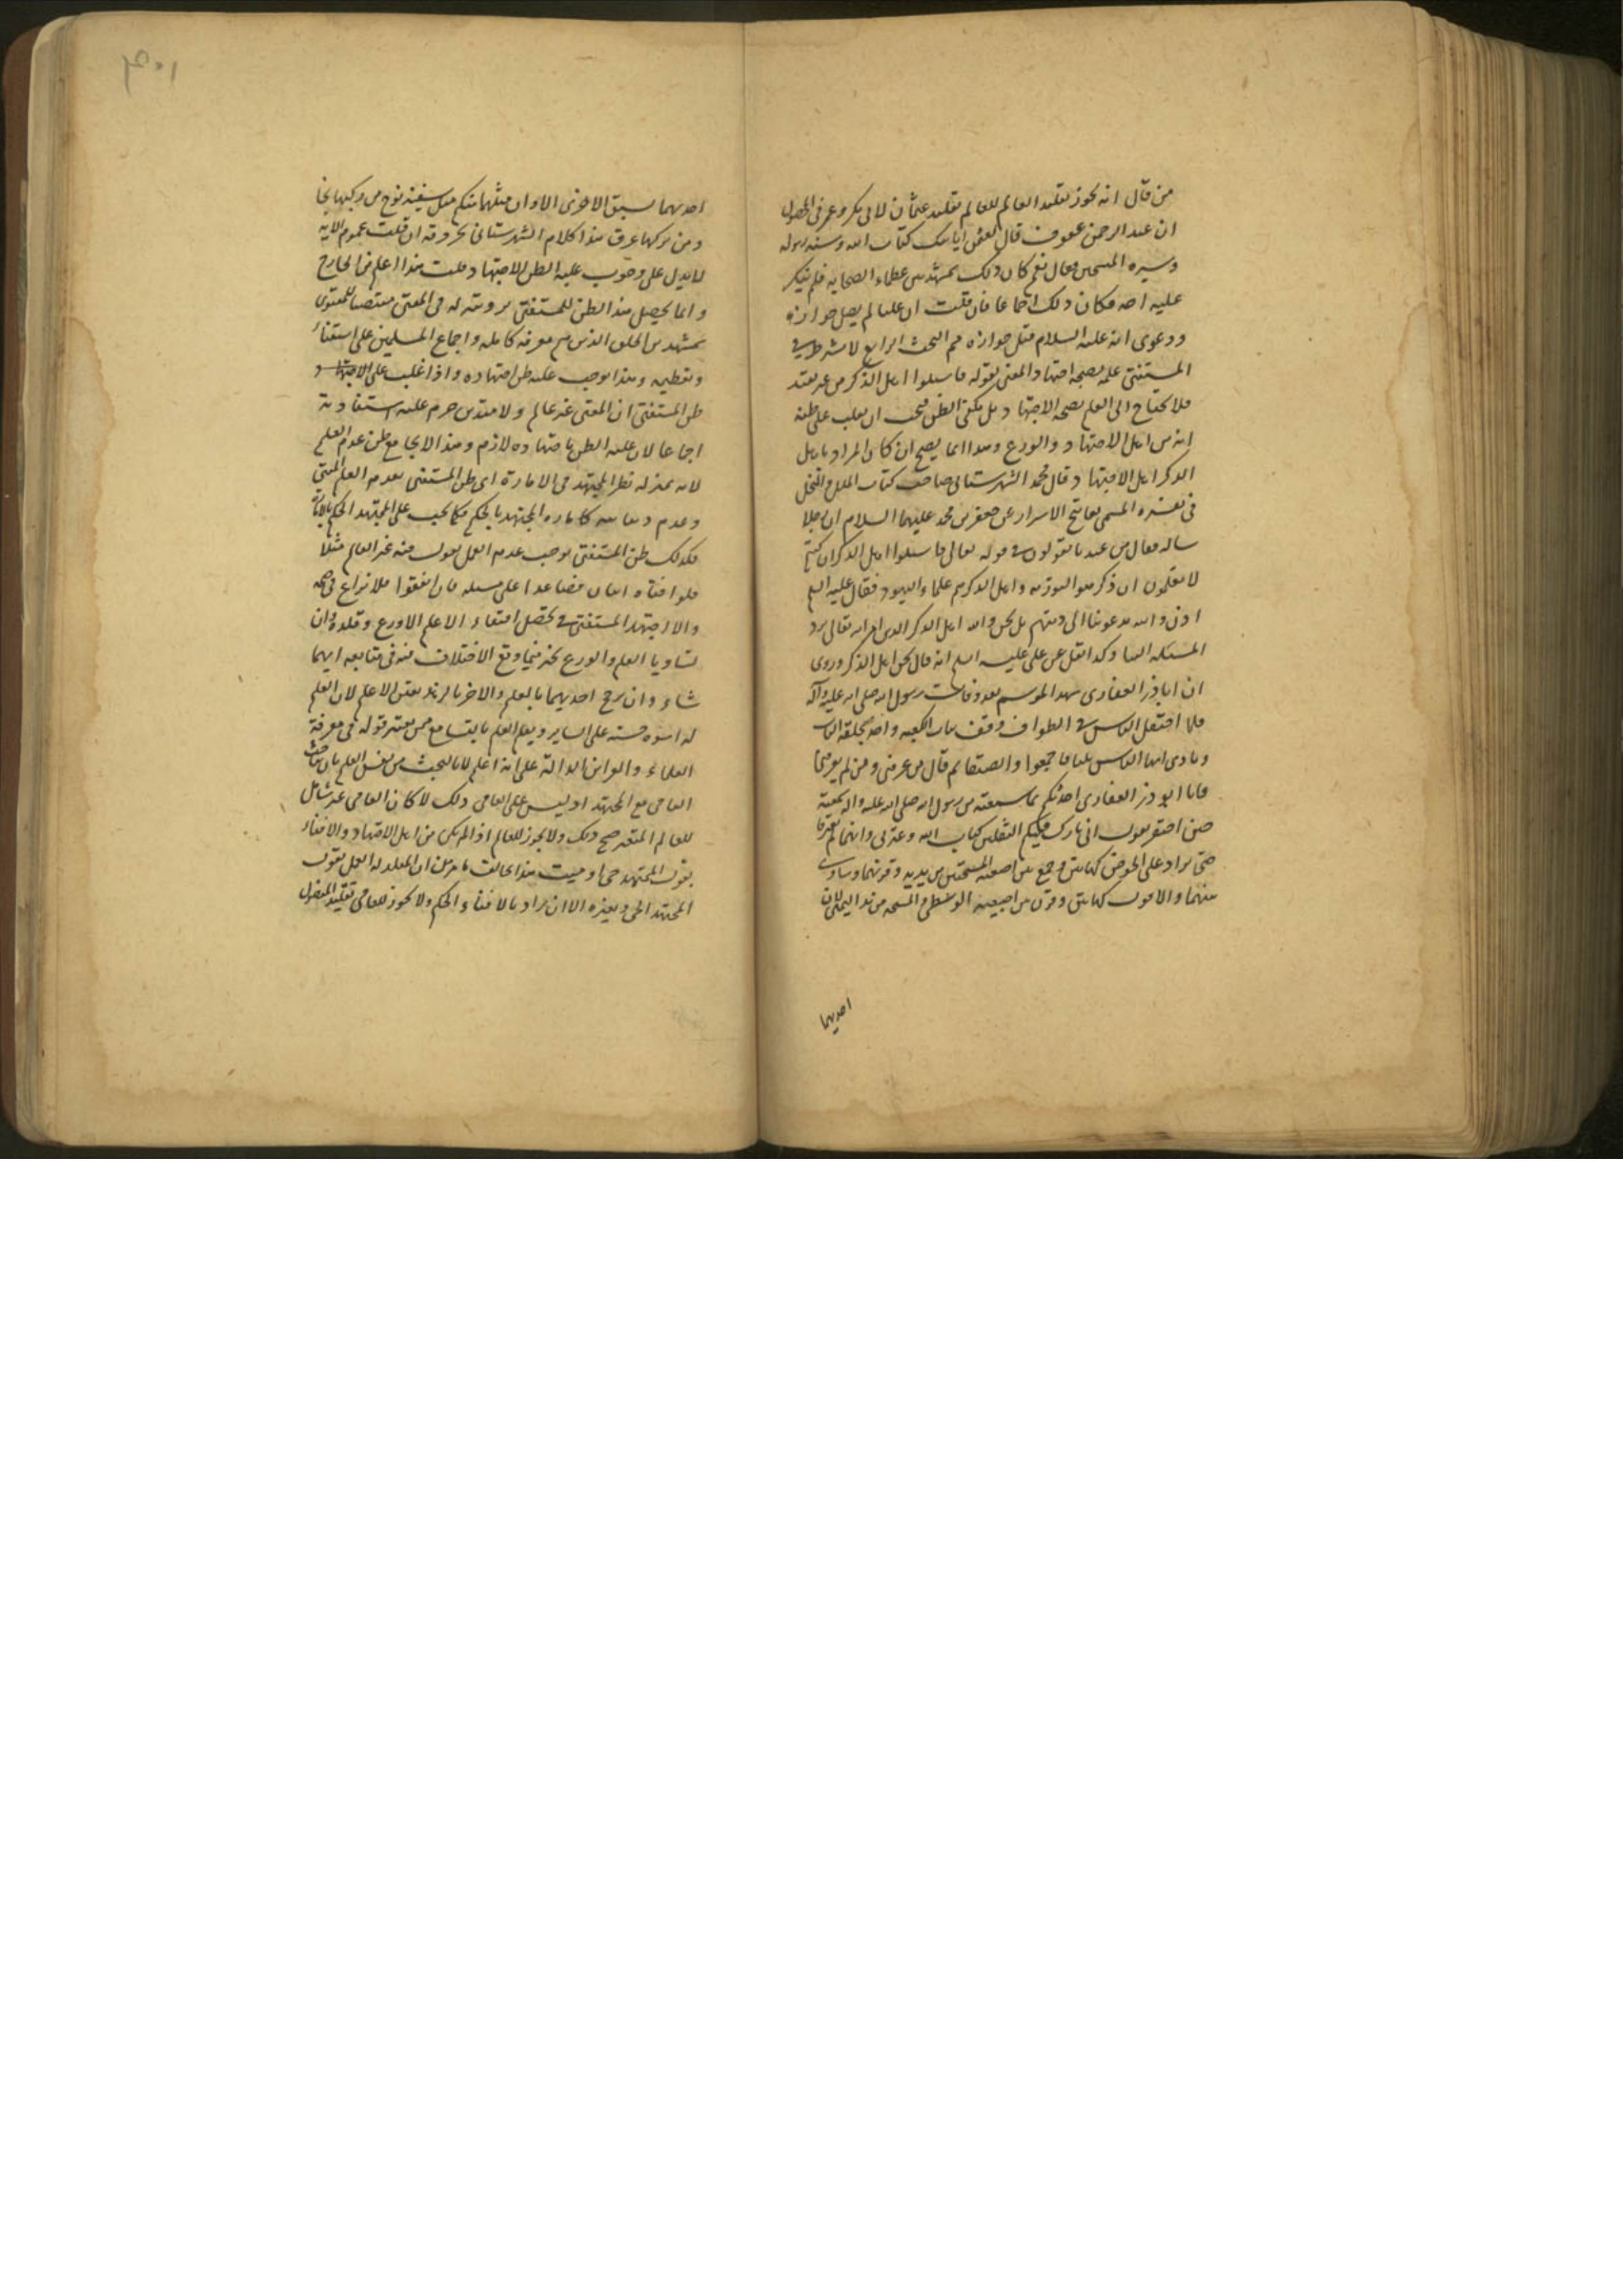 من قال انه يجوز تقليد العالم للعالم تقليد عثمان لابى بكر وعمر فى
ان عبد الرحمن عوف قال لعثمن ابايعك كتاب الله وسنه رسوله
وسيره الشيخين فقال نعم كان ذلك بمشهد من عظماء الصحابه فلم ينكر
عليه احد فكان ذلك اجماعا فان قلت ان عليا لم يصل جوازه
ودعوى انه عليه السلام قبل جوازه مم البحث الرابع لا شرط فى
المستفتى علمه بصحه اجتهاد المفتى لقوله فاسئلوا اهل الذكر من غير تقييد
فلا يحتاج الى العلم بصحه الاجتهاد بل يكفى الظن فيجب ان يغلب على ظنه
انه من اهل الاجتهاد والورع وهذا انما يصح ان كان المراد باهل
الذكر اهل الاجتهاد وقال محمد الشهرستانى صاحب كتاب الملل والنحل
فى تفسيره المسمى بمفاتيح الاسرار عن جعفر بن محمد عليهما السلام ان رجلا
ساله فقال من عندنا يقولون فى قوله تعالى فاسئلوا اهل الذكر ان كنتم
لا تعلمون ان الذكر هو التوريه واهل الذكر هم علماء اليهود فقال عليه السلم
اذن والله يدعوننا الى دينهم بل نحن والله اهل الذكر الذى امر الله تعالى برد
المسئله الينا وكذا نقل عن على عليه السلم انه قال نحن اهل الذكر وروى
ان اباذر الغفارى شهد الموسم بعد وفات رسول الله صلى الله عليه وآله
فلما احتفل الناس فى الطواف وقف بباب الكعبه واخذ بحلقه الباب
ونادى ايها الناس ثلثا فاجتمعوا وانصتوا ثم قال من عرفنى ومن لم يعرفنى
فانا ابوذر الغفارى احدثكم بما سمعته من رسول الله صلى الله عليه واله سمعته
حين احتضر يقول انى تارك فيكم الثقلين كتاب الله وعترتى وانهما لم يفترقا
حتى يردا على الحوض كهاتين وجمع بين اصبعيه المسبحتين من يديه وقرنهما وساوى
بينهما والا اقول كهاتين وقرن بين اصبعيه الوسطى والمسبحه من يده اليمنى لان
احديهما
احديهما يسبق الاخرى الا وان مثلهما فيكم مثل سفينه نوح من ركبها نجا
ومن تركها غرق هذا كلام الشهرستانى بحروفه ان قلت عموم الايه
لا يدل على وجوب غلبه الظن للاجتهاد قلت هذا اعلم من الخارج
وانما يحصل هذا الظن للمستفتى برويته له فى المفتى منتصبا للفتوى
بمشهد من الخلق الذين مع معرفه كامله واجماع المسلمين على استفتائه
وتعظيمه وهذا يوجب غلبه ظن اجتهاده واذا غلب على
ظن المستفتى ان المفتى غير عالم ولا متدين حرم عليه استفتاوته
اجماعا لان غلبه الظن باجتهاده لازم وهذا لا يجامع ظن عدم العلم
لانه بمنزله نظر المجتهد فى الاماره اى ظن المستفتى بعدم العلم المفتى
وعدم ديانته كاماره المجتهد بالحكم فكما يجب على المجتهد الحكم بالاماره
فكذلك ظن المستفتى يوجب عدم العمل بقوله منه غير العلم مثلا
فلو افتاه اثنان فصاعدا على مسئله فان اتفقوا فلا نزاع فى صحه
والا اجتهد المستفتى فى تحصيل افتاء الاعلم الاورع وقلده وان
تساويا العلم والورع تخير فيما وقع الاختلاف منه فى متابعه ايهما
شاء وان رجح احديهما بالعلم والاخر بالزهد تعين الاعلم لان العلم
له اسوه حسنه على الساير ويعلم العلم بالتسامع ممن يعتبر قوله فى معرفة
العلماء والقراين الداله على انه اعلم لا بالبحث عن نفس العلم بان يباحث
العامى مع المجتهد اذ ليس على العامى ذلك لا كان العامى غير شامل
للعالم المتغير صح ذلك ولا يجوز للعالم اذا لم يكن من اهل الاجتهاد والافتاء
بقول المجتهد حى او ميت هذا يخالف ما مر من ان المقلد له العمل بقول
المجتهد الحى وبغيره الا ان يراد بالافتاء والحكم ولا يجوز للعامى تقليد المفضول